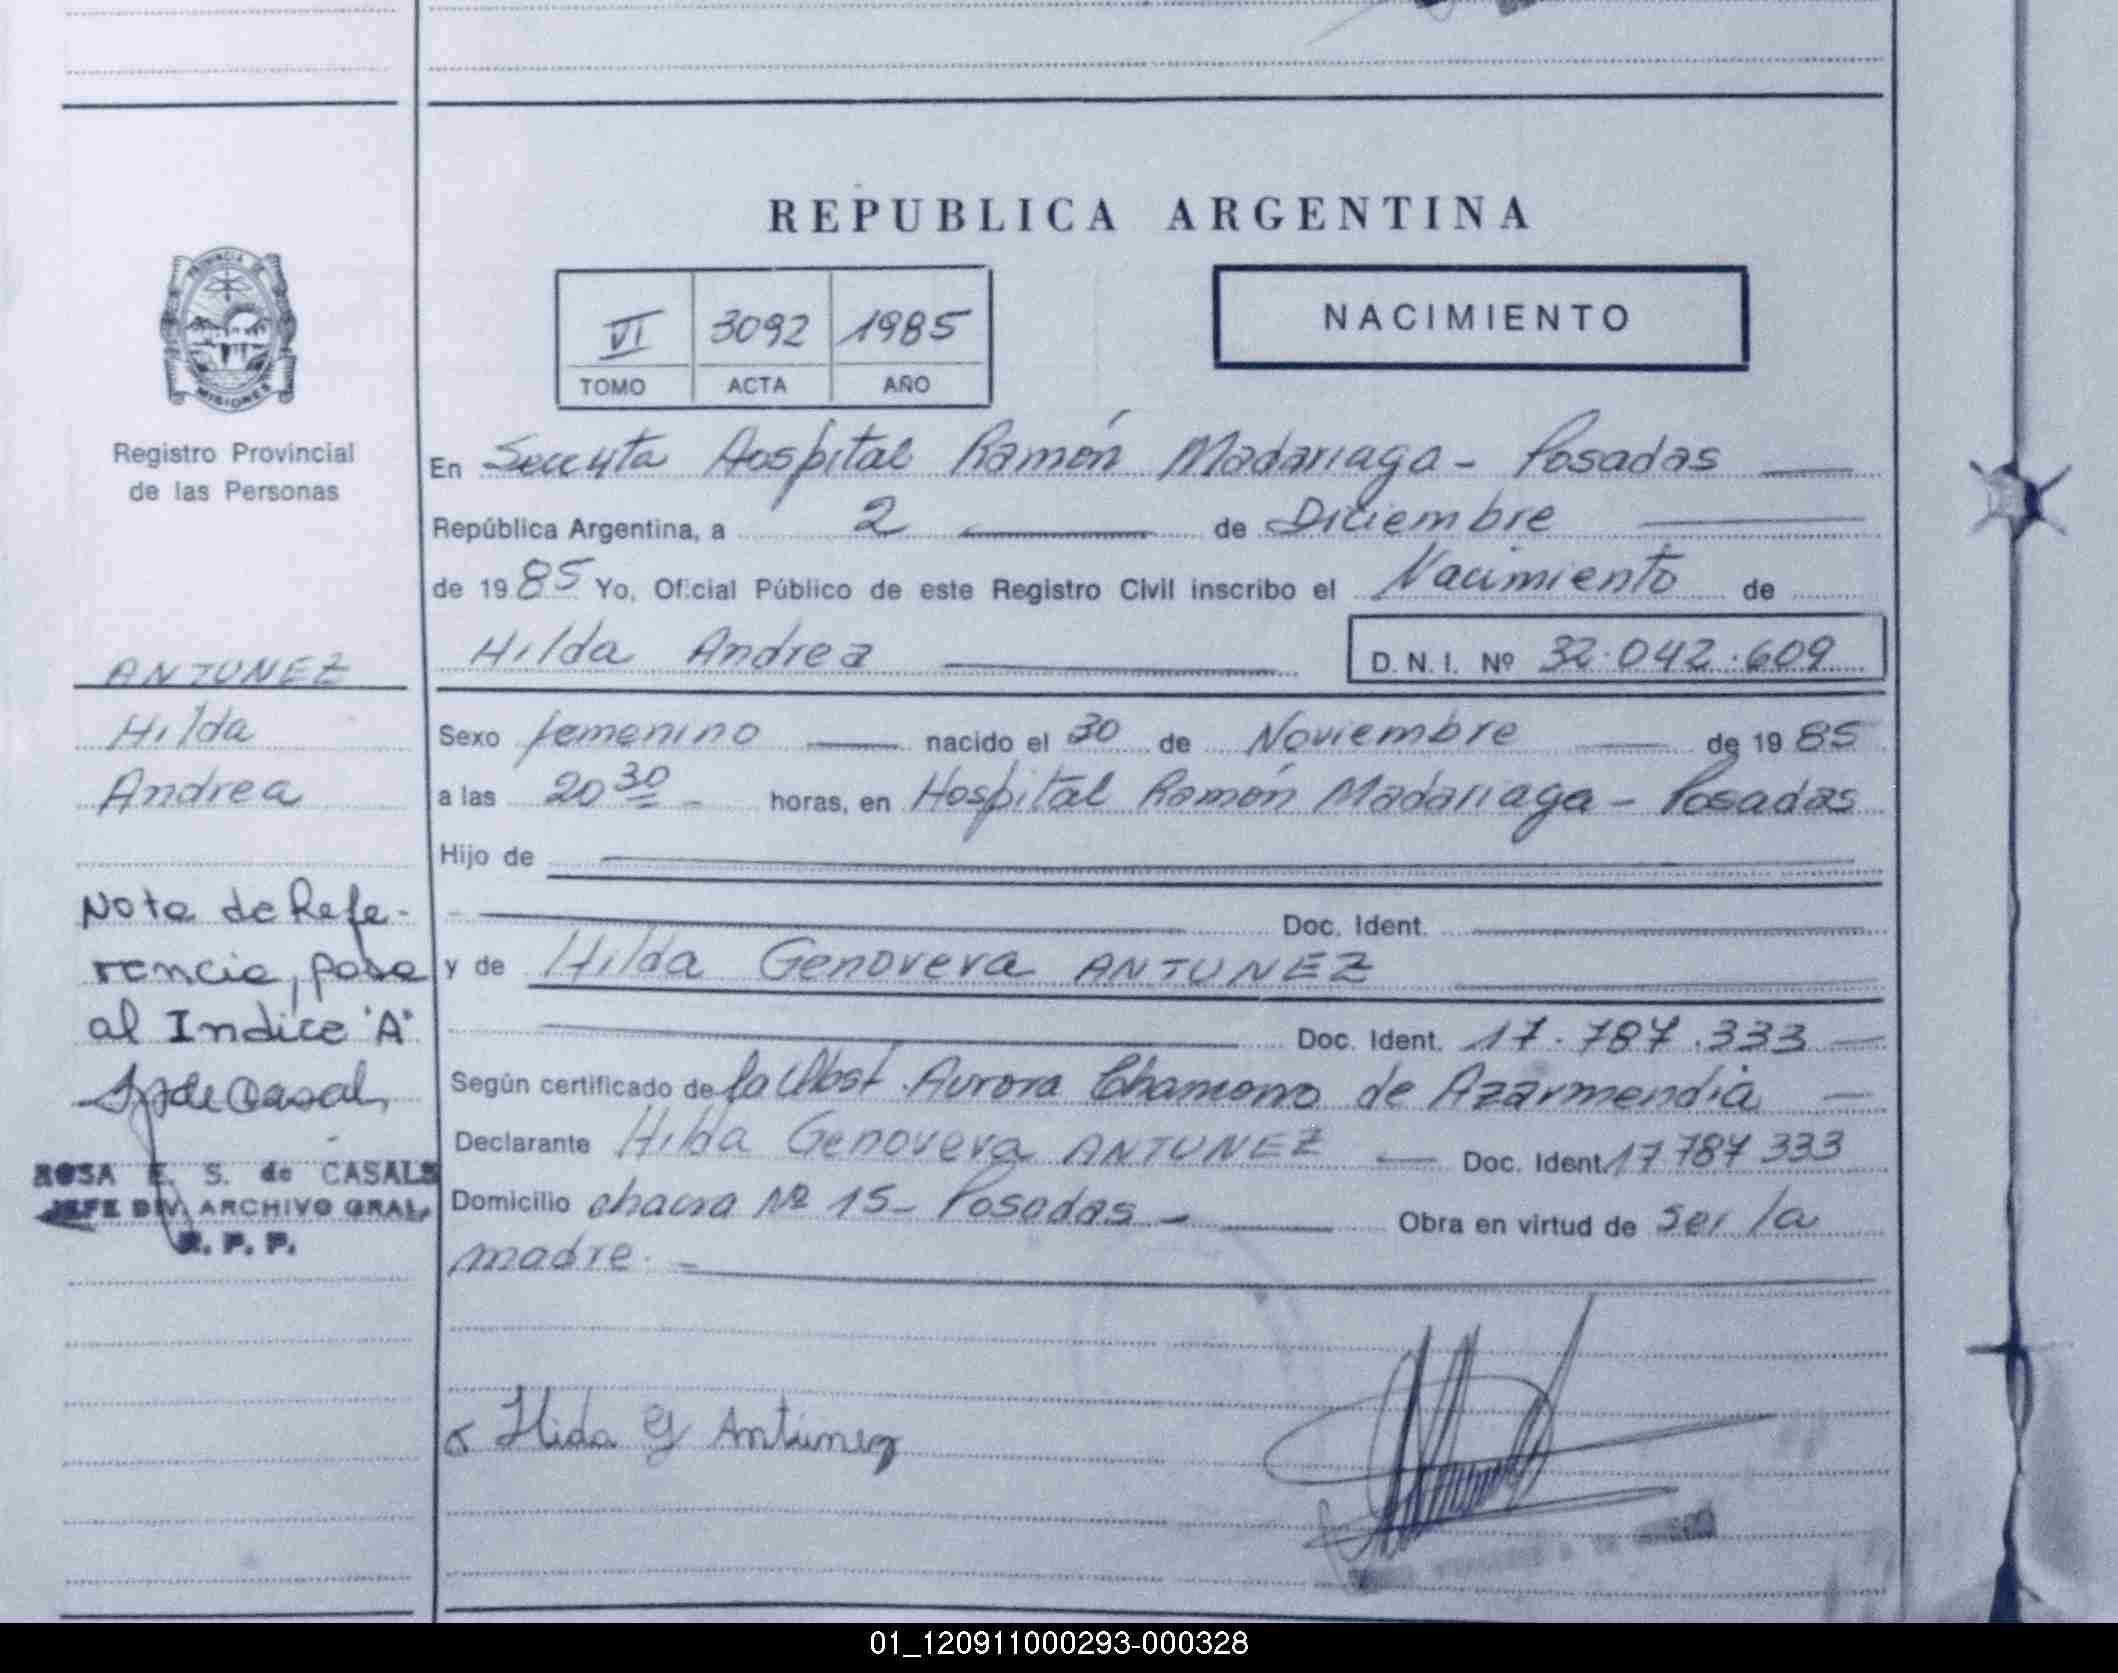 REPUBLICA ARGENTINA
VI 3092 1985
TOMO ACTA AÑO
NACIMIENTO
PROVINCIA DE
MISIONES
Registro Provincial
de las Personas
ANTUNEZ
Hilda
Andrea
Nota de Refe-
rencia, pasa
al Indice "A"
ROSA E. S. de CASALS
JEFE DIV. ARCHIVO GRAL.
R. P. P.
En Seccita Hospital Ramón Madariaga - Posadas
República Argentina, a 2 de Diciembre
de 1985 Yo, Oficial Público de este Registro Civil inscribo el Nacimiento de
Hilda Andrea D. N. I. Nº 32.042.609
Sexo femenino nacido el 30 de Noviembre de 1985
a las 20 30 horas, en Hospital Ramón Madariaga - Posadas
Hijo de
Doc. Ident.
y de Hilda Genoveva ANTUNEZ
Doc. Ident. 17.787.333
Según certificado de la Obst. Aurora Chamorro de Azarmendia
Declarante Hilda Genoveva ANTUNEZ Doc. Ident. 17 787 333
Domicilio chacra Nº 15 - Posadas - Obra en virtud de ser la
madre.
Hida G Antúnez
01_120911000293-000328